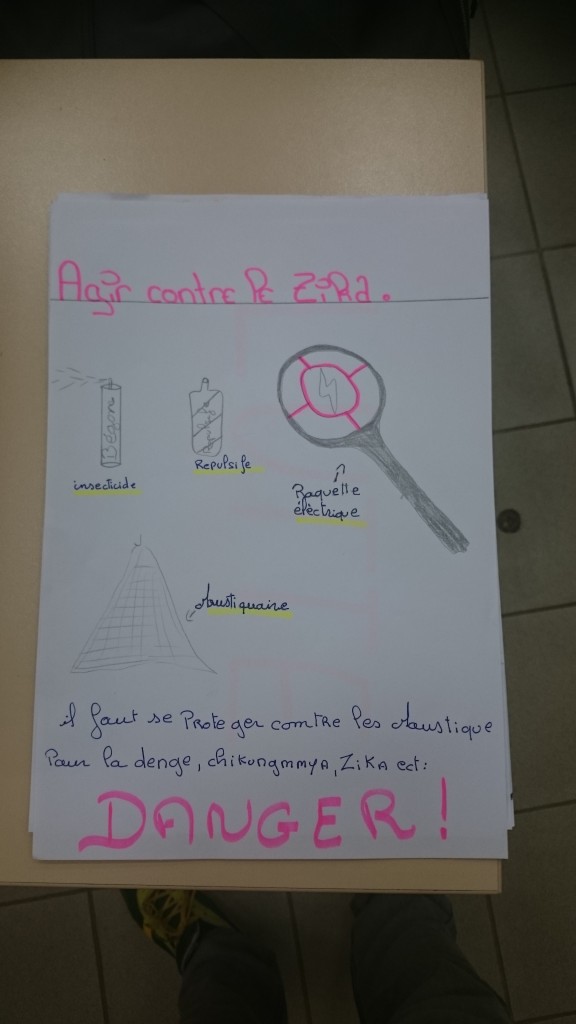 Agir contre le Zika.
Bégon
Repulsife
insecticide
Repulsife
Raquette
éléctrique
Moustiquaire
il faut se Proteger contre les Moustique
Pour la denge, chikungmmya, Zika ect:
DANGER!